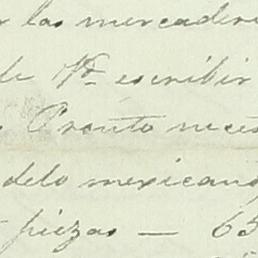 r las mercaderi
de Vd. escribir
Pronto neces
delo mexicano
piezas — 65